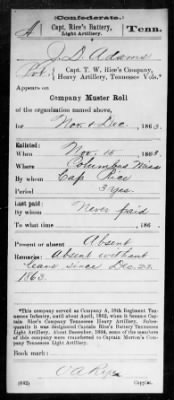 (Confederate.)
A Capt. Rice's Battery, Light Artillery. Tenn.
J. D. Adams
Pvt., Capt. T. W. Rice's Company, Heavy Artillery, Tennessee Vols.*
Appears on
Company Muster Roll
of the organization named above,
for Nov. & Dec., 1863.
Enlisted:
When Nov. 15, 1863.
Where Columbus Miss
By whom Cap Rice
Period 3 yrs.
Last paid:
By whom Never paid
To what time , 186 .
Present or absent Absent
Remarks: Absent without
leave since Dec. 22
1863.
*This company served as Company A, 39th Regiment Tennessee
Infantry, until about April, 1862, when it became Captain
Rice's Company Tennessee Heavy Artillery. Subsequently
it was designated Captain Rice's Battery Tennessee
Light Artillery. About December, 1864, some of the members
of this company were transferred to Captain Morton's Company
Tennessee Light Artillery.
Book mark:
(642) Copyist.